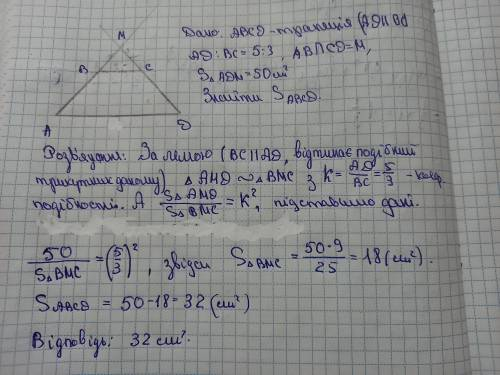 M
B
C
A
D
Дано: ABCD - трапеція (AD || BC
AD : BC = 5:3, AB∩CD = M,
S△ADM = 50 см²
Знайти SABCD.
Розв'язання: За лемою (BC || AD, відтинає подібний
трикутник даному) △AMD ∾ △BMC з K = AD/BC = 5/3 - коеф.
подібності. А S△AMD/S△BMC = K², підставимо дані.
50/S△BMC = (5/3)², звідси S△BMC = 50·9/25 = 18 (см²).
SABCD = 50 - 18 = 32 (см²)
Відповідь: 32 см².